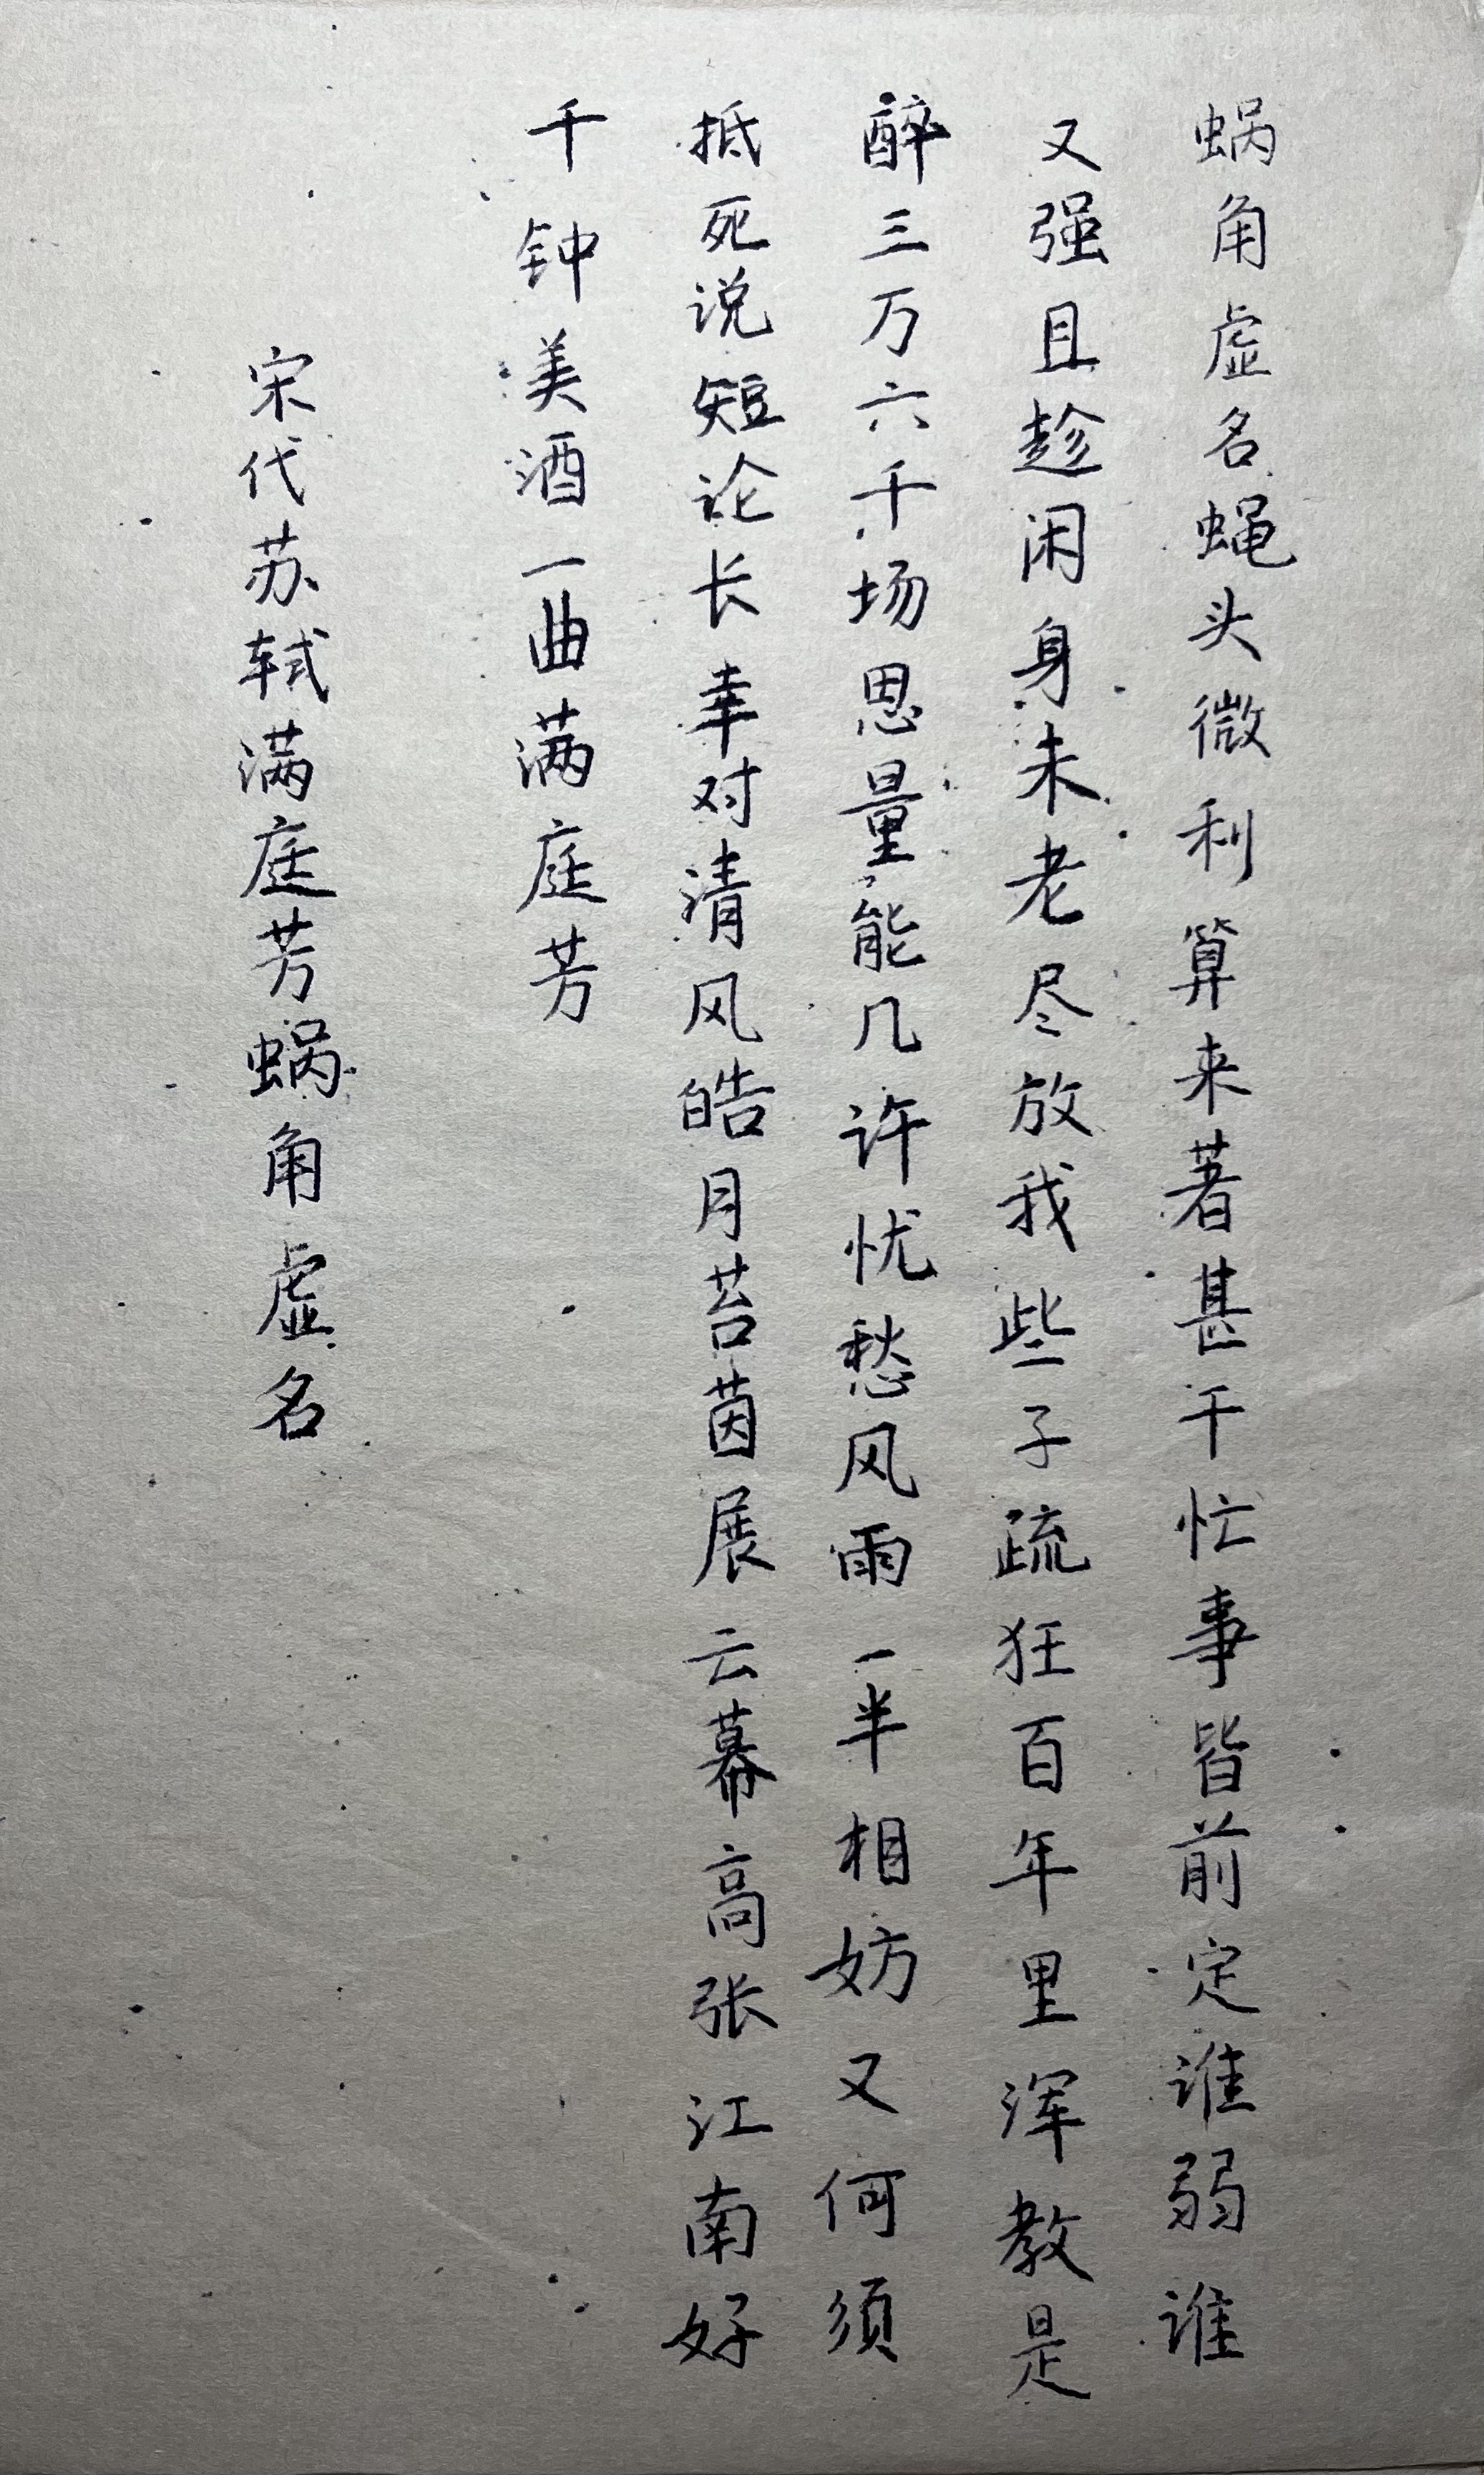 蜗角虚名蝇头微利算来著甚干忙事皆前定谁弱谁
又强且趁闲身未老尽放我些子疏狂百年里浑教是
醉三万六千场思量能几许忧愁风雨一半相妨又何须
抵死说短论长幸对清风皓月苔茵展云幕高张江南好
千钟美酒一曲满庭芳
宋代苏轼满庭芳蜗角虚名